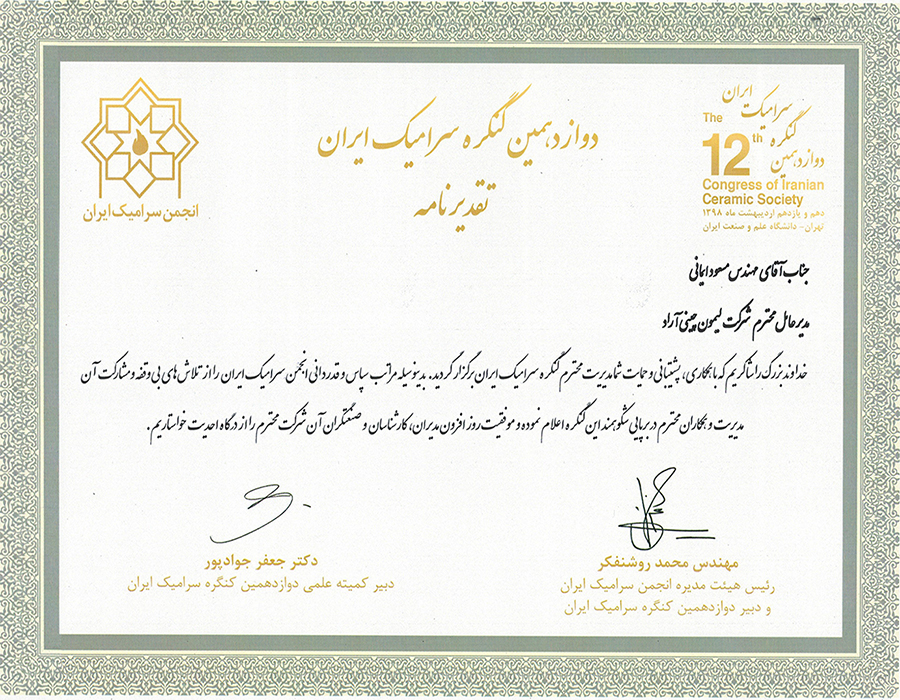 ایران
سرامیک
کنگره
دوازدهمین
The
12th
Congress of Iranian
Ceramic Society
دهم و یازدهم اردیبهشت ماه ۱۳۹۸
تهران - دانشگاه علم و صنعت ایران
دوازدهمین کنگره سرامیک ایران
تقدیرنامه
انجمن سرامیک ایران
جناب آقای مهندس مسعود ایمانی
مدیرعامل محترم شرکت لیمون چینی آراد
خداوند بزرگ را شاکریم که با همکاری، پشتیبانی و حمایت شما مدیریت محترم کنگره سرامیک ایران برگزار گردید. بدینوسیله مراتب سپاس و قدردانی انجمن سرامیک ایران را از تلاش های بی وقفه و مشارکت آن
مدیریت و همکاران محترم در برپایی شکوهمند این کنگره اعلام نموده و موفقیت روز افزون مدیران، کارشناسان و صنعتگران آن شرکت محترم را از درگاه احدیت خواستاریم.
مهندس محمد روشنفکر
رئیس هیئت مدیره انجمن سرامیک ایران
و دبیر دوازدهمین کنگره سرامیک ایران
دکتر جعفر جوادپور
دبیر کمیته علمی دوازدهمین کنگره سرامیک ایران